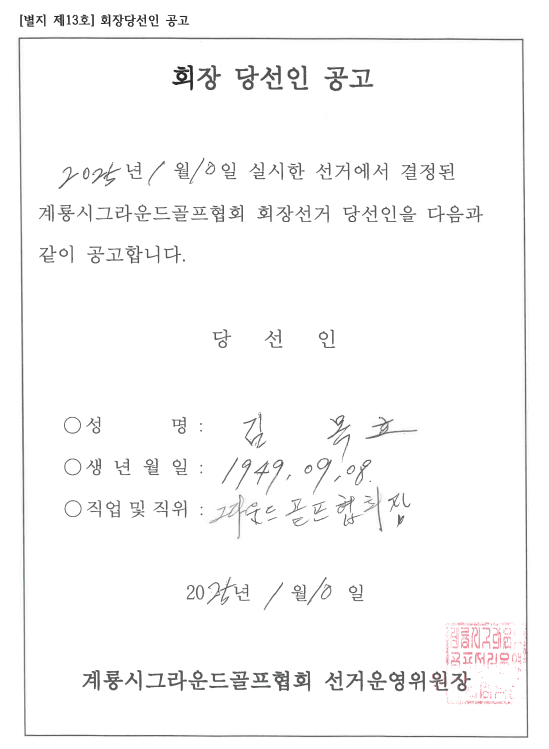 [별지 제13호] 회장당선인 공고
회장 당선인 공고
2025년 1월 10일 실시한 선거에서 결정된
계룡시그라운드골프협회 회장선거 당선인을 다음과
같이 공고합니다.
당 선 인
○성 명 : 김 목효
○생 년 월 일 : 1949. 09. 08.
○직업 및 직위 : 그라운드 골프 협회장
2025년 1월 10일
계룡시그라운드골프협회 선거운영위원장